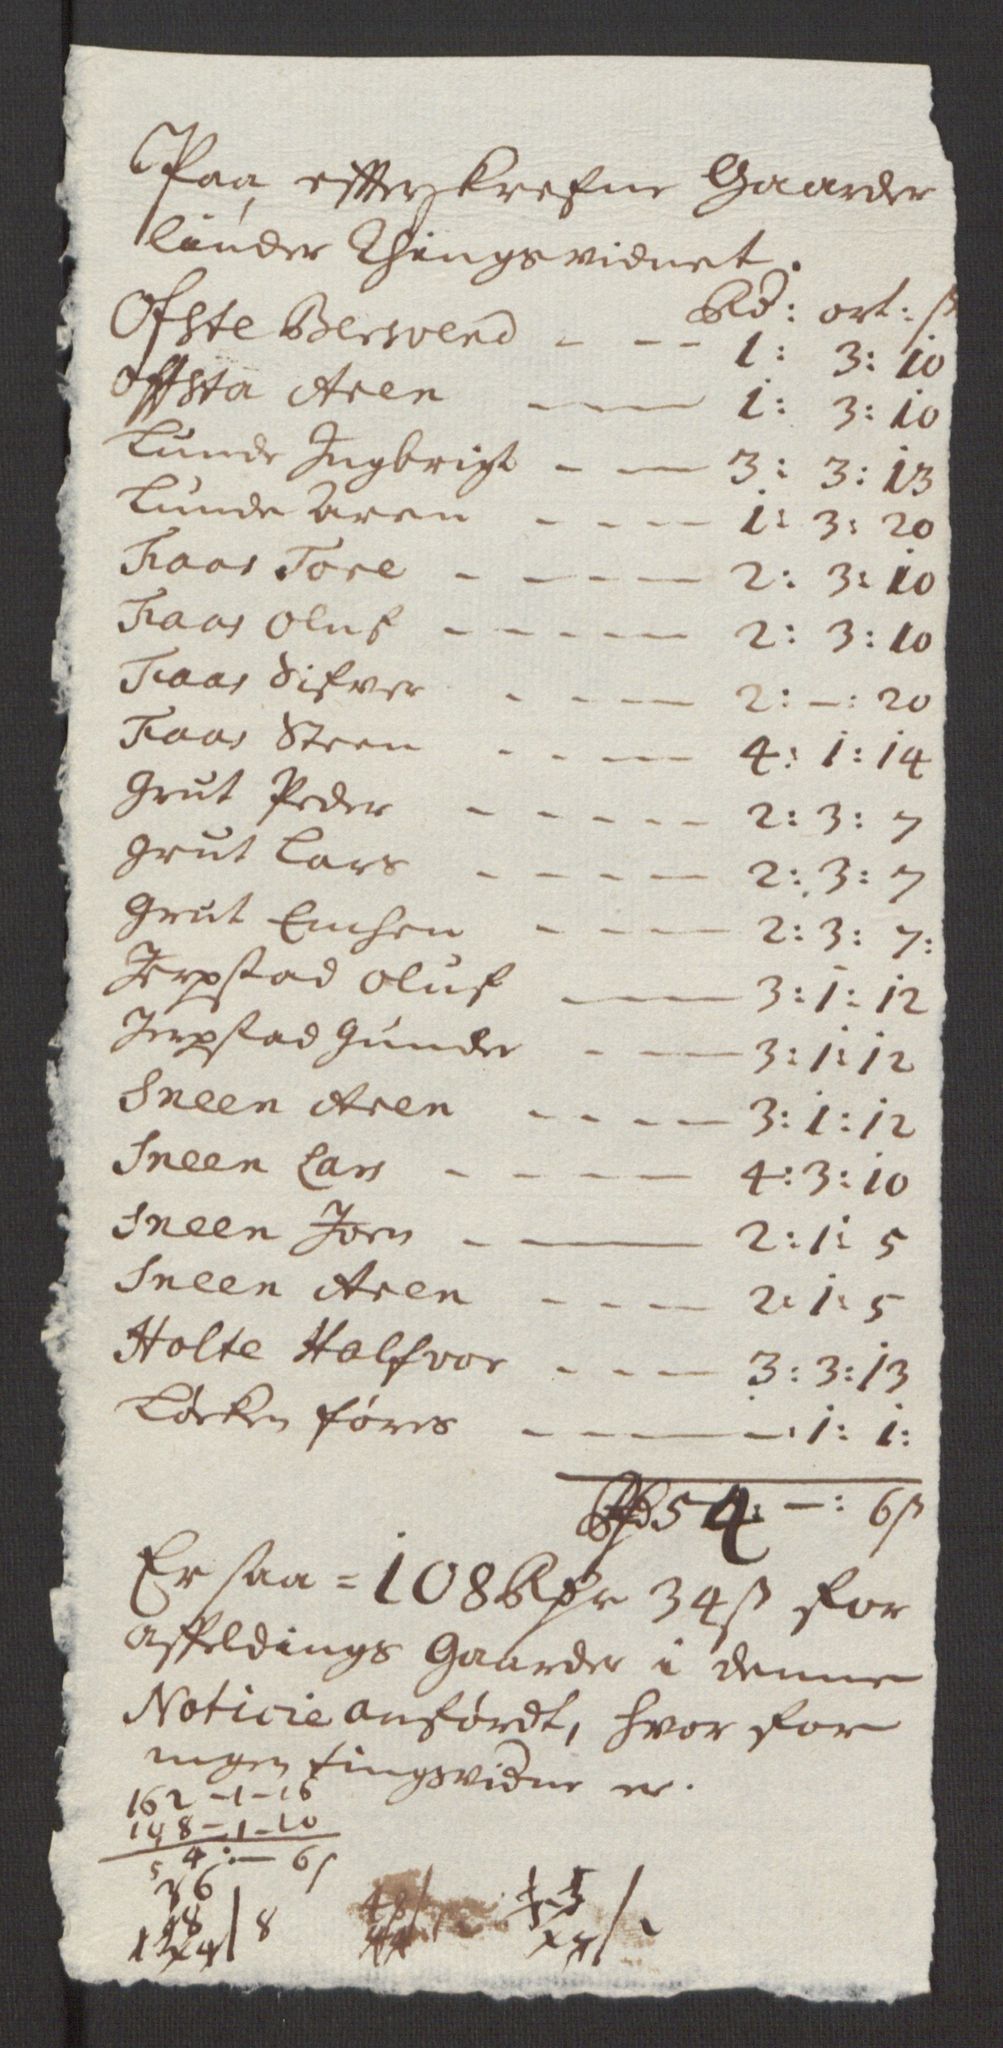 Paa efterskrefne Gaarder
under Thingsvidnet.
Rd: ort: ß
Ofste Bersvend - - - 1: 3: 10
Offsta Aren - - - 1: 3: 10
Lunde Ingbrigt - - 3: 3: 13
Lunde Aren - - - - 1: 3: 20
Faas Tore - - - - 2: 3: 10
Faas Oluf - - - - - 2: 3: 10
Faas Sifver - - - - 2: -: 20
Faas Steen - - - - 4: 1: 14
Grut Peder - - - - - 2: 3: 7
Grut Lars - - - - 2: 3: 7
Grut Emhen - - - - 2: 3: 7:
Jerpstad Oluf - - - 3: 1: 12
Jerpstad Gunder - - 3: 1: 12
Sneen Aren - - - - 3: 1: 12
Sneen Lars - - - - 4: 3: 10
Sneen Jorn - - 2: 1: 5
Sneen Aren - - - - 2: 1: 5
Holte Halfvor - - - 3: 3: 13
Løcken føres - - - 1: 1:
54: -: 6ß
Er saa = 108 34ß for
affeldings Gaarder i denne
Noticie anførdt, hvor for
ingen tingsvidne er.
162 - 1 - 16
148 - 1 - 10
54: - 6ß
36
48
8